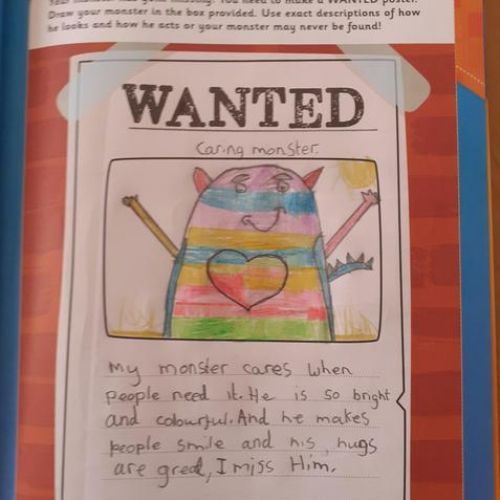 Your monster has gone missing! You need to make a WANTED poster.
Draw your monster in the box provided. Use exact descriptions of how
he looks and how he acts or your monster may never be found!
WANTED
Caring monster.
My monster cares when
people need it. He is so bright
and colourful. And he makes
people smile and his hugs
are great, I miss Him.